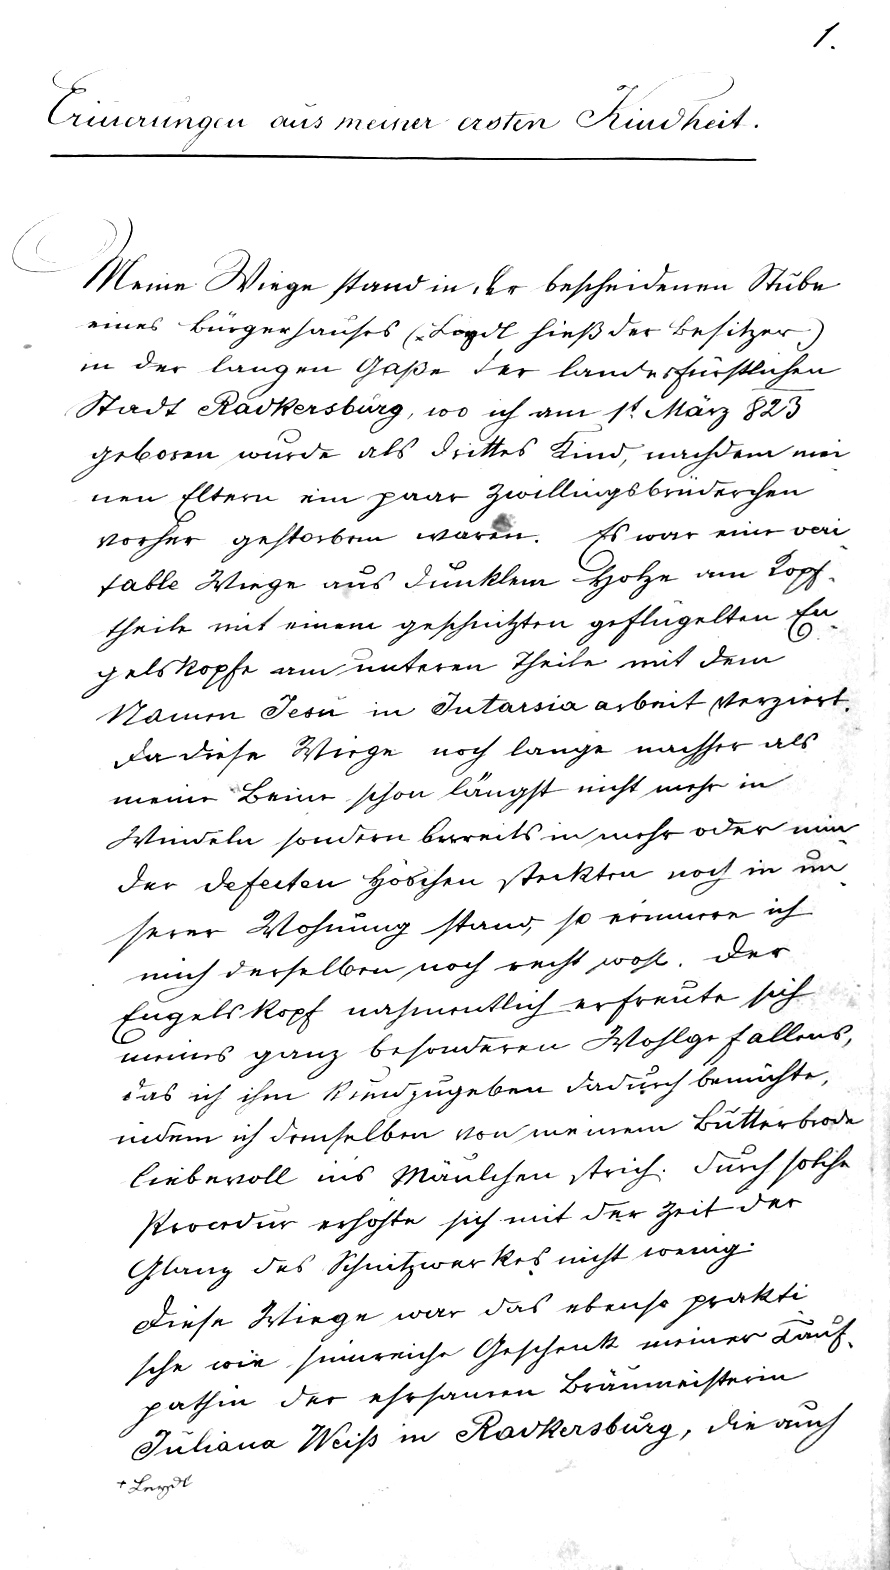 1.
Erinerungen aus meiner ersten Kindheit.
Meine Wiege stand in der bescheidenen Stube
eines Bürgerhauses (Loydl hieß der Besitzer)
in der langen Gaße der landesfürstlichen
Stadt Radkersburg, wo ich am 1t März 823
geboren wurde als drittes Kind, nachdem mei
nen Eltern ein paar Zwillingsbrüderchen
vorher gestorben waren. Es war eine veri-
table Wiege aus dunklem Holze am Kopf-
theile mit einem geschnitzten geflügelten En-
gelskopfe am unteren Theile mit dem
Namen Jesu in Intarsia arbeit verziert.
Da diese Wiege noch lange nachher als
meine Beine schon längst nicht mehr in
Windeln sondern bereits in mehr oder min-
der defecten Höschen steckten noch in un-
serer Wohnung stand, so erinnere ich
mich derselben noch recht wohl. Der
Engelskopf nahmentlich erfreute sich
meines ganz besonderen Wohlgefallens,
das ich ihm kundzugeben dadurch bemühte,
indem ich demselben von meinem Butterbrode
liebevoll ins Mäulchen strich. Durch solche
Procedur erhöhte sich mit der Zeit der
Glanz des Schnitzwerkes nicht wenig.
Diese Wiege war das ebenso prakti
sche wie sinnreiche Geschenk meiner Tauf-
pathin der ehrsamen Bräumeisterin
Juliana Weiß in Radkersburg, die auch
+ Leydl